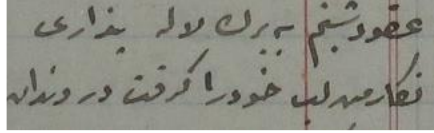 عقود شبنم به برك لاله بنداری
نكار من لب خود را كرفت در دندان